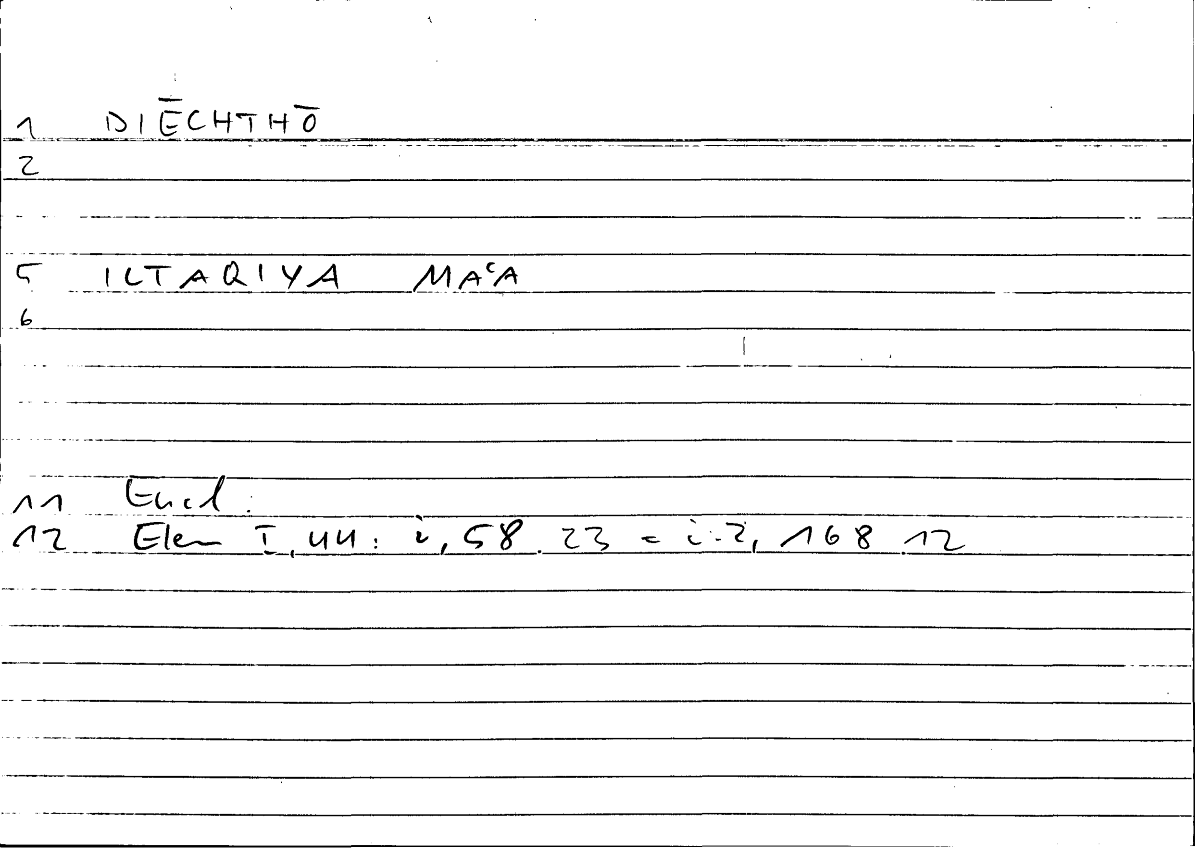 1 DIĒCHTHŌ
2
5 ILTAQIYA MAʿA
6
11 Eucl.
12 Elem I, 44: i, 58.23 = i.2, 168.12